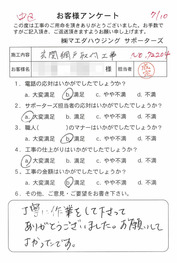 お客様アンケート 9/10
この度は工事のご用命を頂きありがとうございました。お手数ですがご記入頂き、ご返送頂きますようお願い申し上げます。
㈱マエダハウジング サポーターズ
施工内容 玄関網戸取付工事
お名前 様 担当者
1. 電話の応対はいかがでしたでしょうか？
a. 大変満足 b. 満足 c. やや不満 d. 不満
2. サポーターズ担当者の応対はいかがでしたでしょうか？
a. 大変満足 b. 満足 c. やや不満 d. 不満
3. 職人( )のマナーはいかがでしたでしょうか？
a. 大変満足 b. 満足 c. やや不満 d. 不満
4. 工事の仕上がりはいかがでしたでしょうか？
a. 大変満足 b. 満足 c. やや不満 d. 不満
5. 工事の金額はいかがでしたでしょうか？
a. 大変満足 b. 満足 c. やや不満 d. 不満
6. その他、ご意見・ご要望をお書き下さい。
丁寧い作業をして下さって
ありがとうございました。お願いして
よかったです。